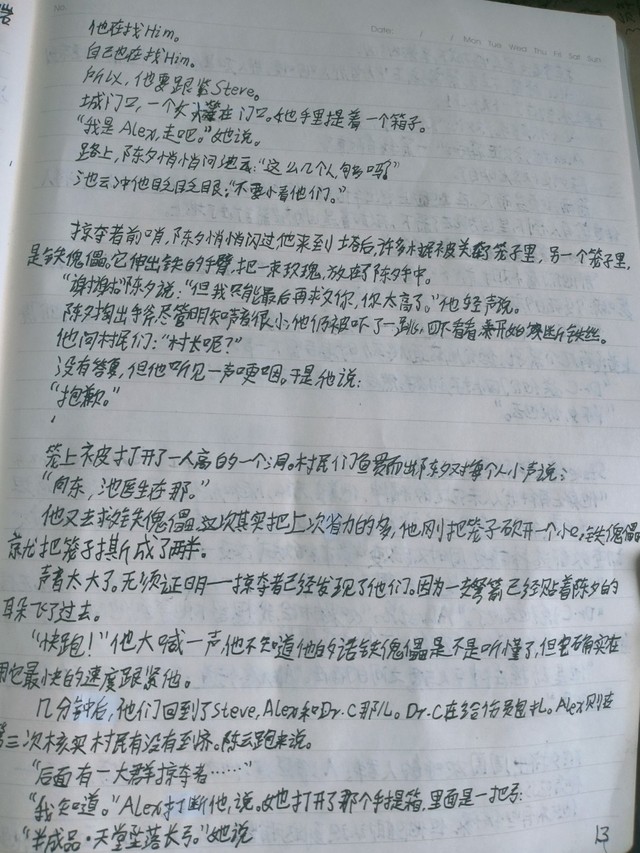 No.
Date: / /
Mon Tue Wed Thu Fri Sat Sun
他在找Him。
自己也在找Him。
所以，他要跟紧Steve。
城门口，一个女在门口。她手里提着一个箱子。
“我是Alex，走吧。”她说。
路上，陈夕悄悄问池云：“这么几个人够吗？”
池云冲他眨眨眼：“不要小看他们。”
掠夺者前哨，陈夕悄悄闪过他来到塔后，许多村民被关在笼子里，另一个笼子里，
是铁傀儡。它伸出铁的手臂，把一束玫瑰，放在陈夕手中。
“谢谢”陈夕说：“但我只能最后再救你，你太高了。”他轻声说。
陈夕掏出手斧，尽管明知声音很小，他仍被吓了一跳，四下看看，来开始砍断铁丝。
他问村民们：“村长呢？”
没有答复，但他听见一声哽咽。于是，他说：
“抱歉。”
笼上被打开了一人高的一个洞。村民们鱼贯而出，陈夕对每个人小声说：
“向东，池医生在那。”
他又去救铁傀儡，这次其实把上次省力的多，他刚把笼子砍开一个小口，铁傀儡
就把笼子撕成了两半。
声音太大了。无须证明——掠夺者已经发现了他们。因为一支弩箭已经贴着陈夕的
耳朵飞了过去。
“快跑！”他大喊一声，他不知道他的话铁傀儡是不是听懂了，但它确实在
用它最快的速度跟紧他。
几分钟后，他们回到了Steve，Alex和Dr·C那儿。Dr·C在给伤员包扎。Alex则在
第三次核实村民有没有到齐。陈云跑来说。
“后面有一大群掠夺者……”
“我知道。”Alex打断他，说。她也打开了那个手提箱，里面是一把弓：
“半成品·天堂坠落长弓。”她说
13